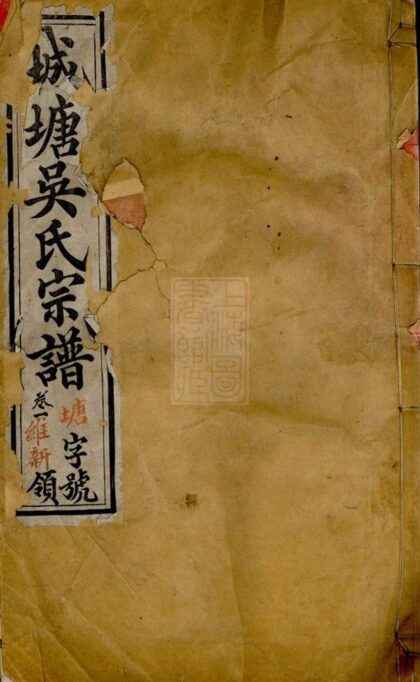 城塘吳氏宗譜
塘字號
卷一維新領
上海圖
書館藏